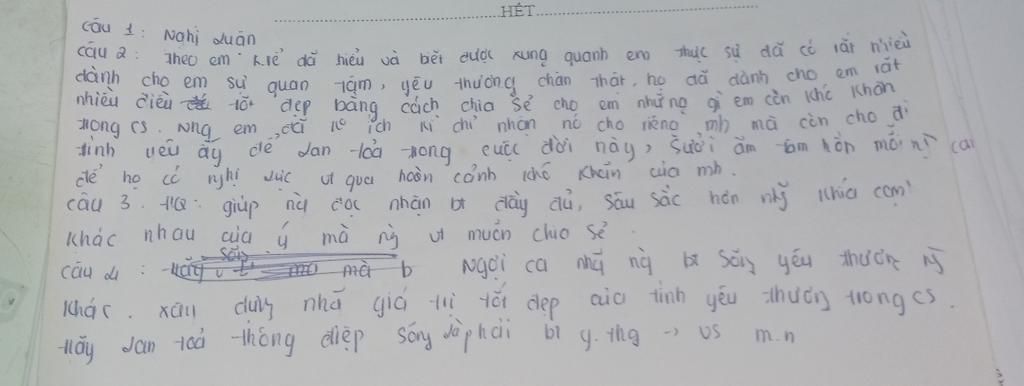 HẾT
Câu 1: Nghị luận
Câu 2: Theo em kể đã hiểu và biết được xung quanh em thực sự đã có rất nhiều
dành cho em sự quan tâm, yêu thương chân thật. họ đã dành cho em rất
nhiều điều tốt đẹp bằng cách chia sẻ cho em những gì em còn khó khăn
trong cs. Nhg em đã ko ích kỉ chỉ nhận nó cho riêng mh mà còn cho đi
tình yêu ấy để lan toả trong cuộc đời này, sưởi ấm tâm hồn mỗi ng
để họ có nghị lực vt qua hoàn cảnh khó khăn của mh.
câu 3. HQ: giúp ng đọc nhận bt đầy đủ, sâu sắc hơn nhg khía cạnh
khác nhau của ý mà ng vt muốn chia sẻ.
câu 4: mà b Ngợi ca nhg ng bt sống yêu thương ng
khác. xây dựng nhg giá trị tốt đẹp của tình yêu thương trong cs.
Hãy lan toả thông điệp sống là phải bt y.thg -> vs m.n